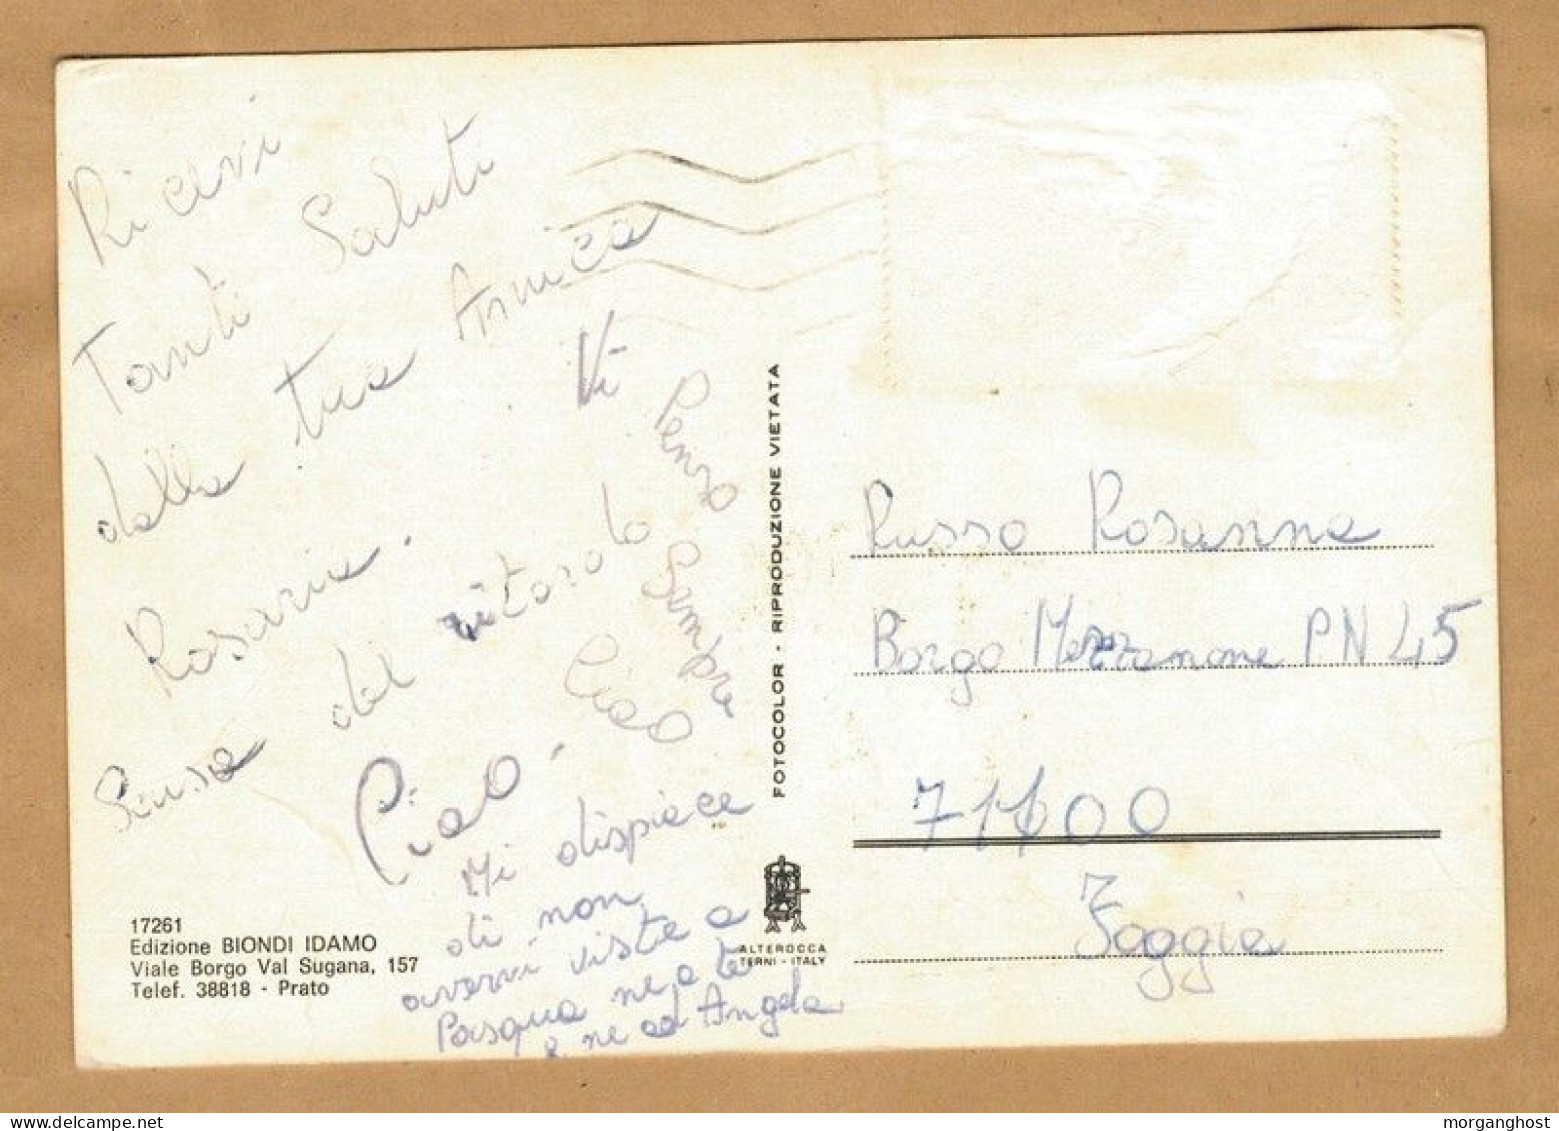 Ricevi
Tanti Saluti
dalla tua Amica
Rosaria.
Scusa del ritardo
Ciao.
Ciao
Vi Penso Sempre
Mi dispiace
di non
avervi viste a
Pasqua ne a te
e ne ad Angela
17261
Edizione BIONDI IDAMO
Viale Borgo Val Sugana, 157
Telef. 38818 - Prato
FOTOCOLOR - RIPRODUZIONE VIETATA
ALTEROCCA
TERNI - ITALY
Russo Rosanna
Borgo Mezzanone PN 45
71100
Foggia
morganghost